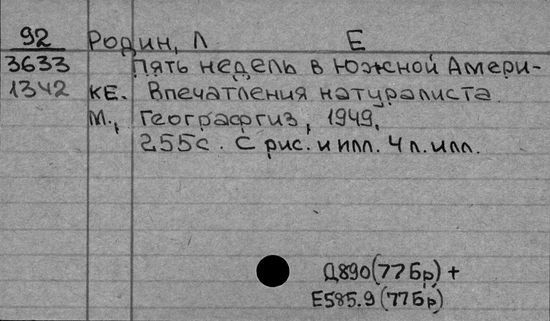 92 Родин, Л Е
3633 Пять недель в Южной Амери-
1342 ке. Впечатления натуралиста.
М., Географгиз, 1949.
255с. С рис. и илл. 4 л. илл.
Д890(77Бр) +
Е585.9(77Бр)